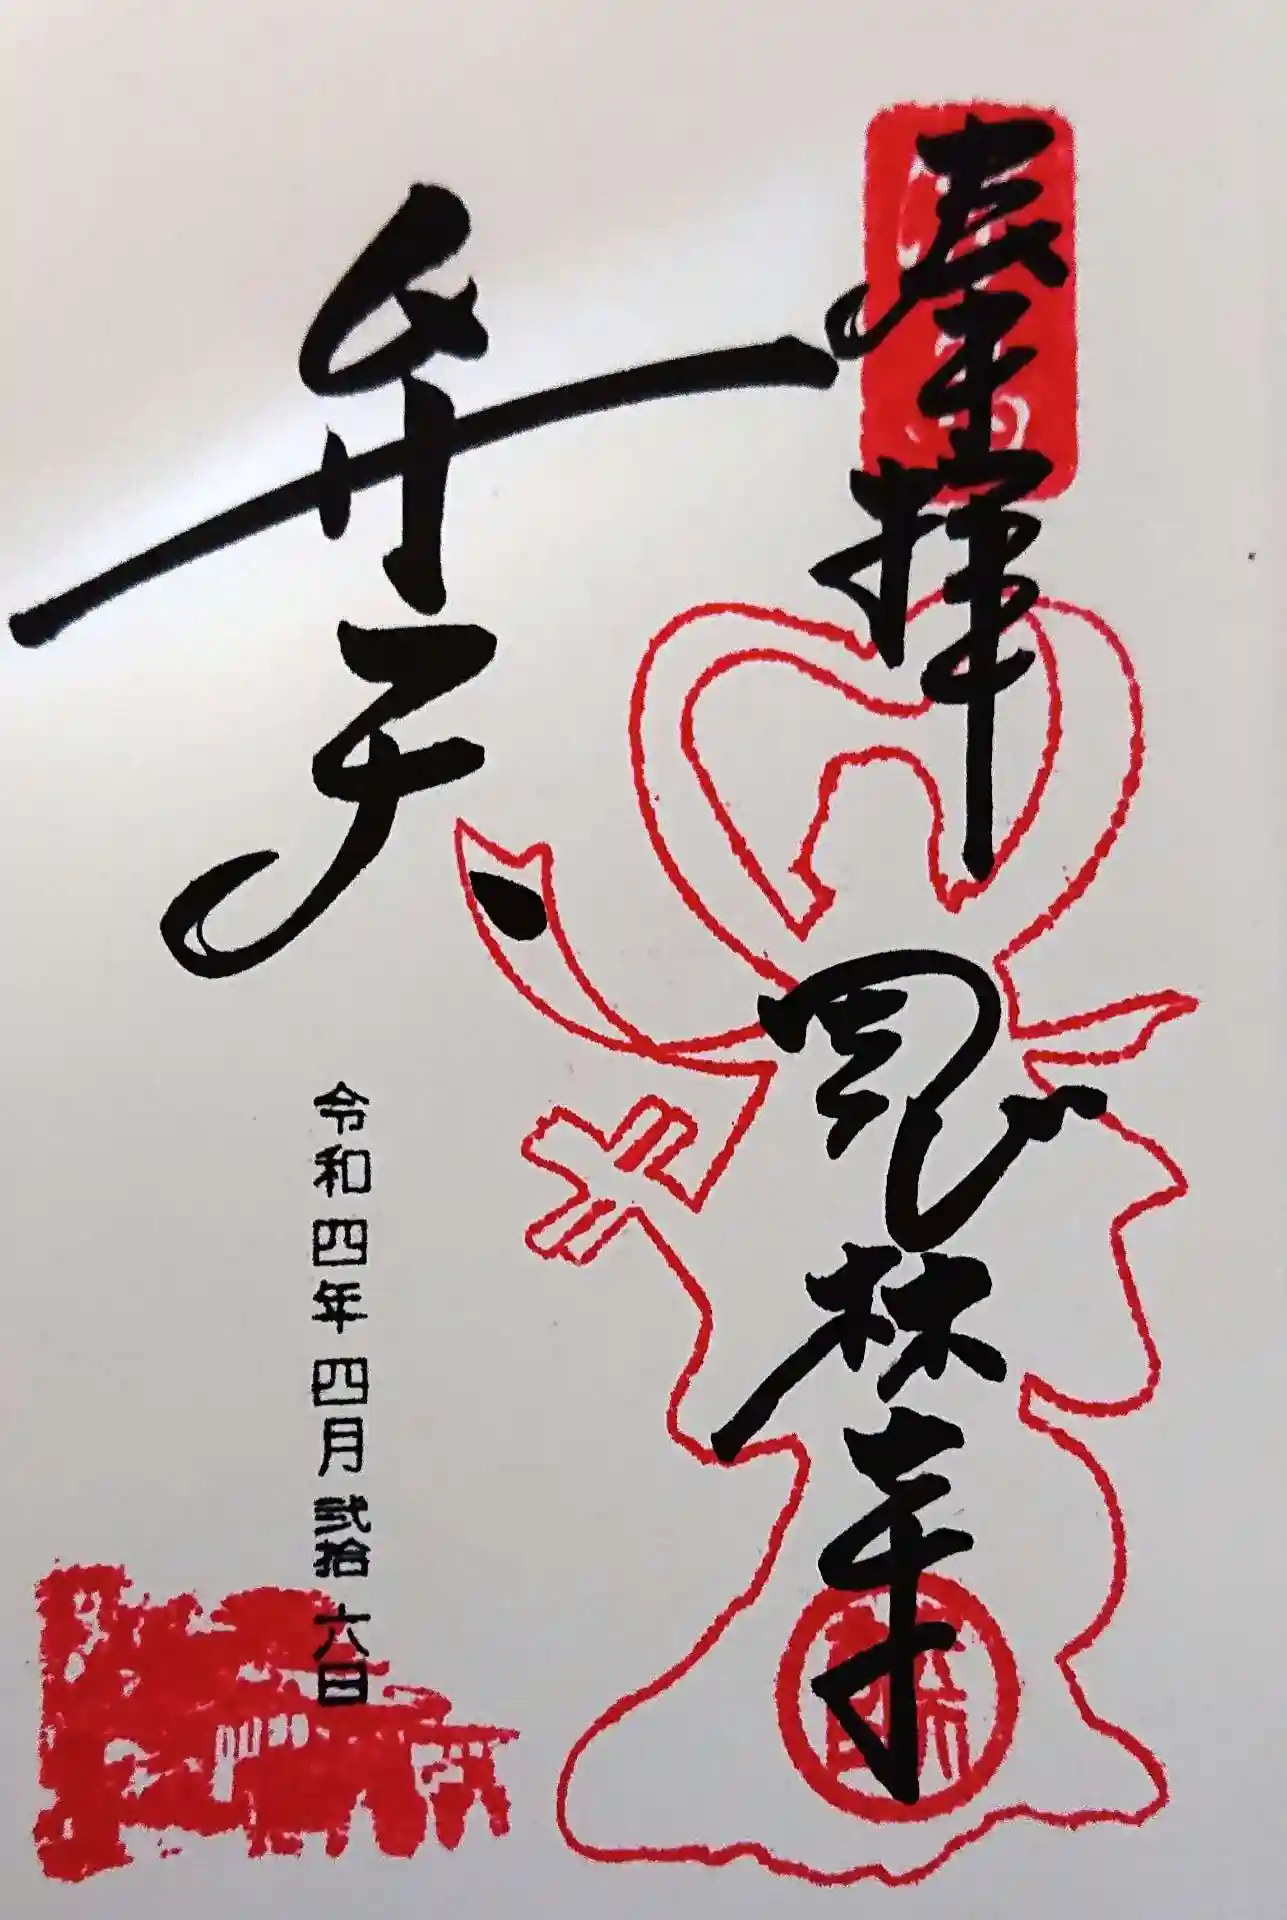 奉拝
林寺
弁天
令和四年四月弐拾六日